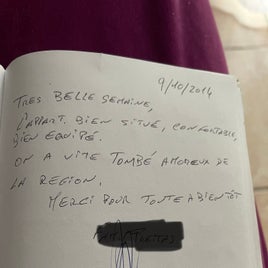 9/10/2014
TRES BELLE SEMAINE,
L'APPART. BIEN SITUÉ, CONFORTABLE,
BIEN EQUIPÉ.
ON A VITE TOMBÉ AMOUREUX DE
LA REGION.
MERCI POUR TOUT E A BIENTÔT